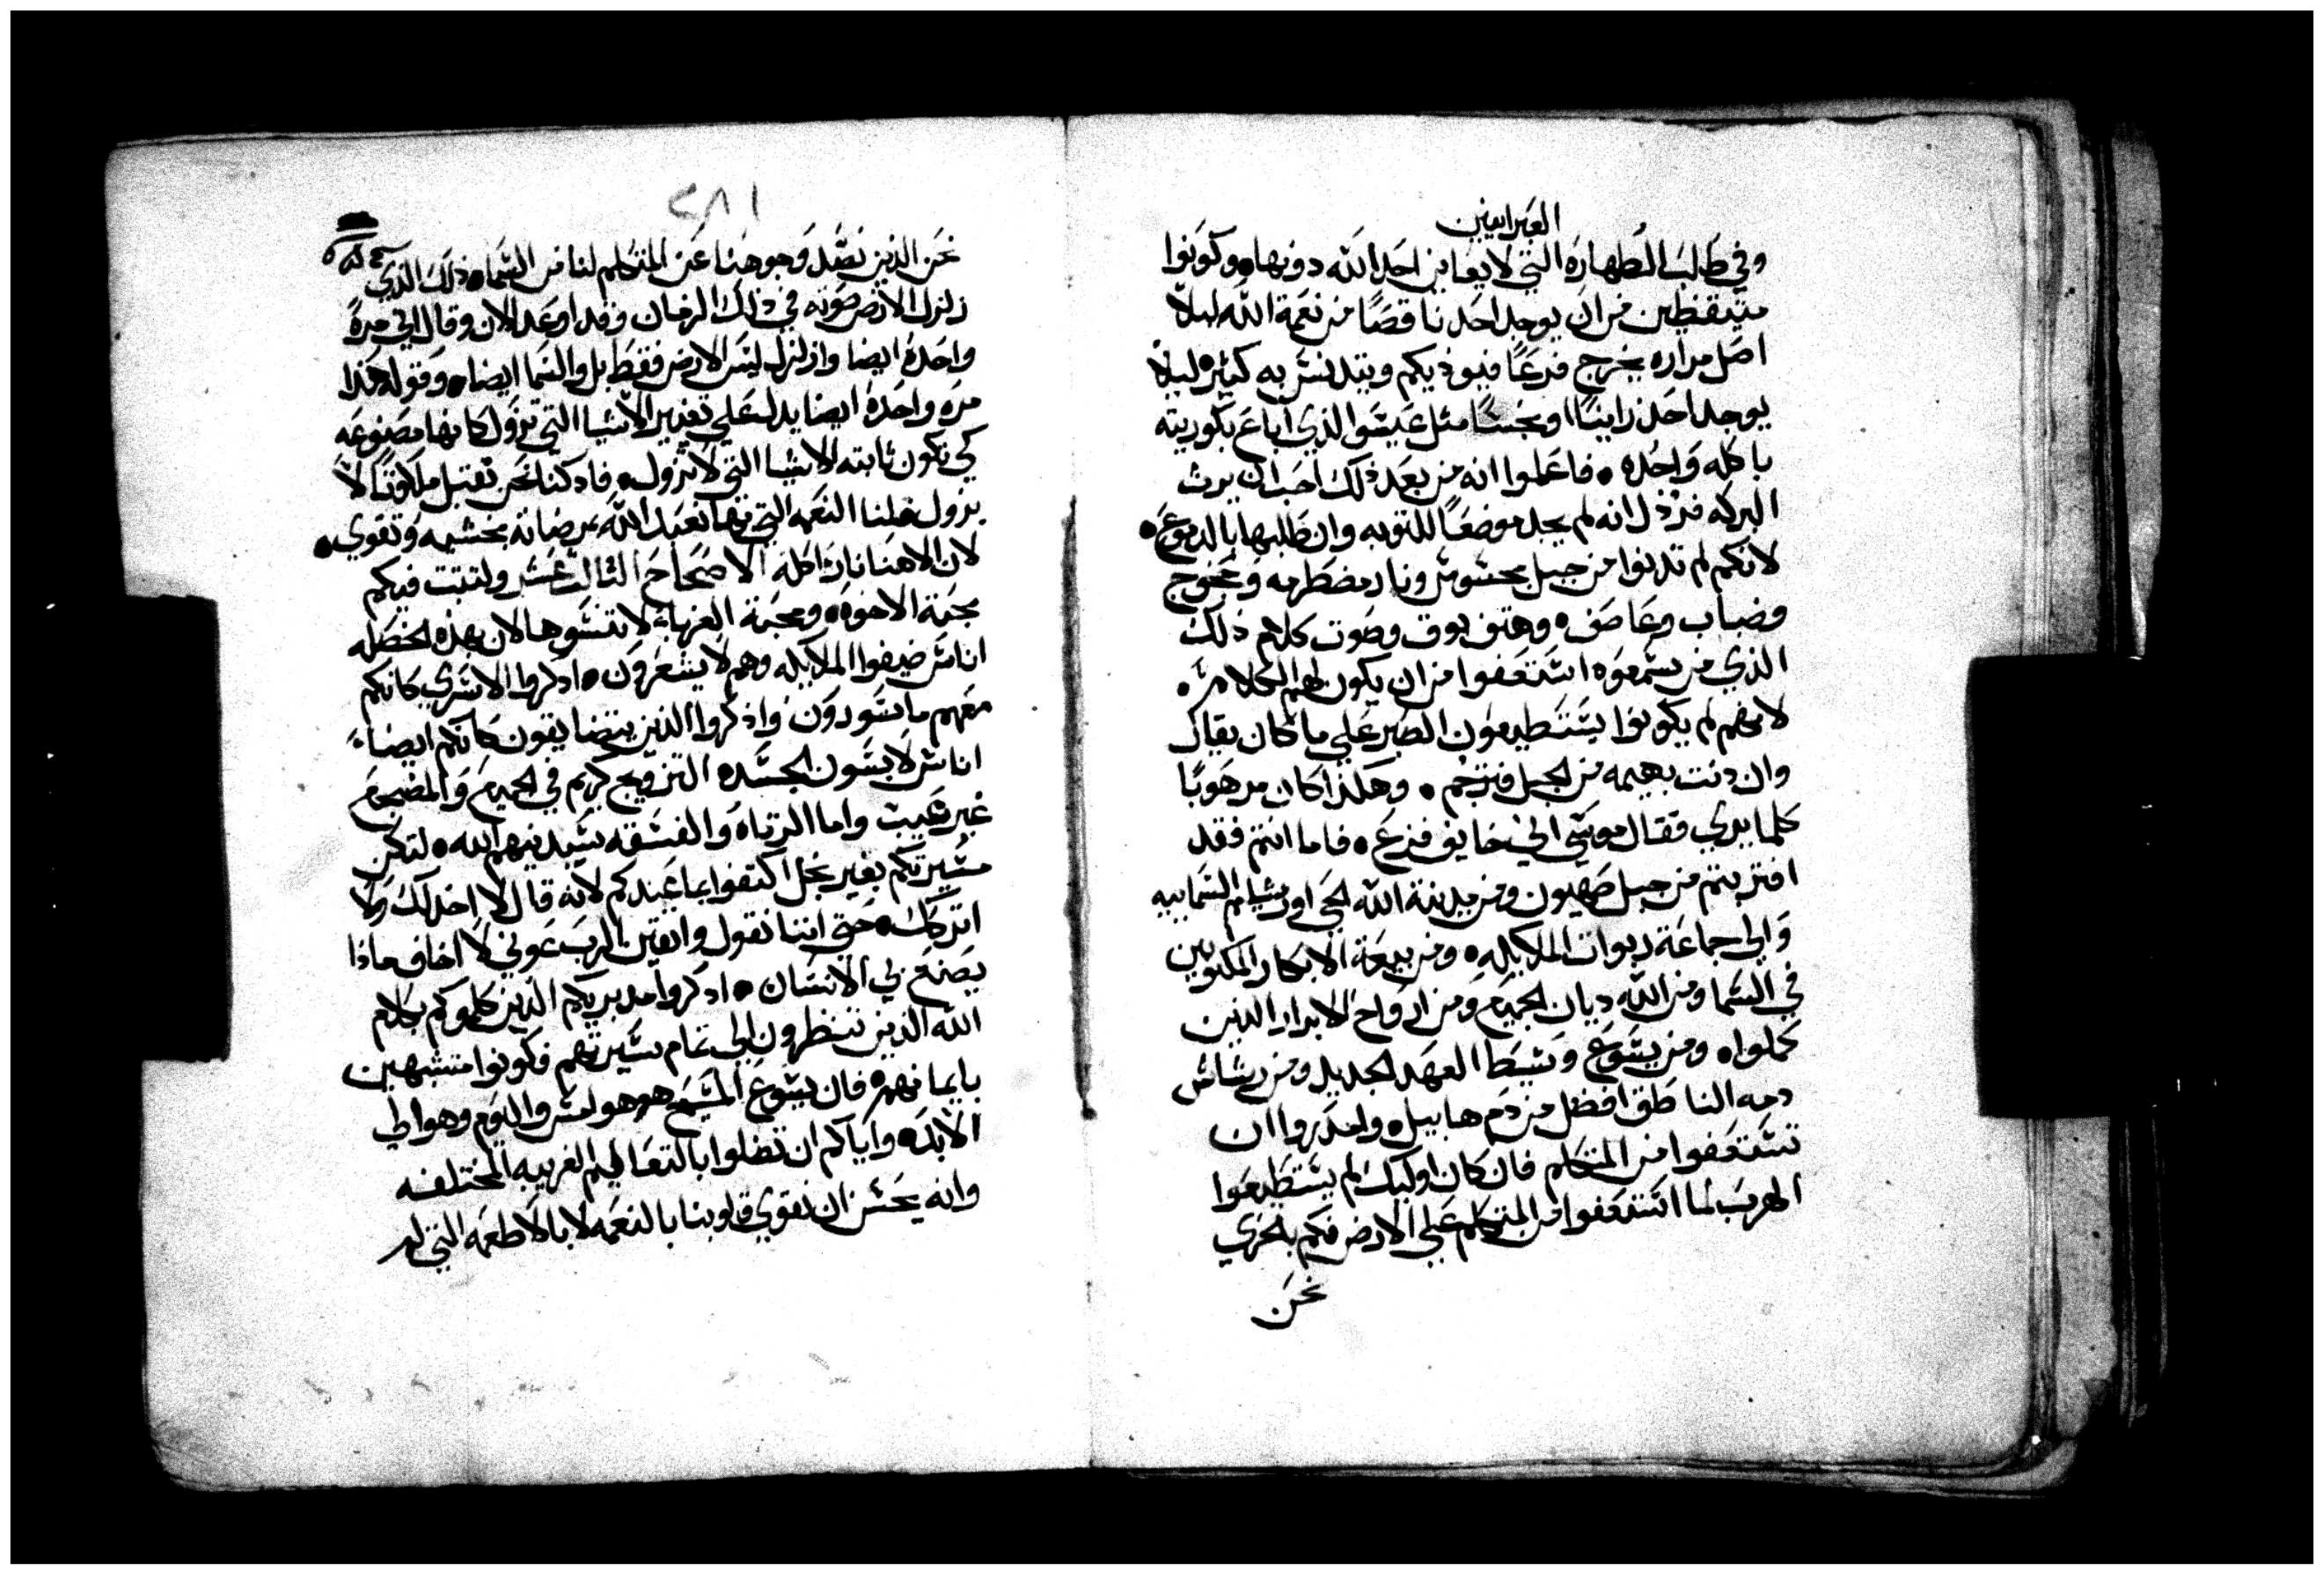 العبرانيين
وفي طلب الطهاره التي لا يعاين احد الله دونها وكونوا
متيقظين من ان يوجد احد ناقصًا من نعمة الله ليلا
اصل مراره يخرج فرعًا فيوذيكم ويتدنس به كثيره ليلا
يوجد احد زانيًا او نجسًا مثل عيسو الذي اباع بكوريته
باكله واحده • فاعلموا انه من بعد ذلك احب ان يرث
البركه فرُذل انه لم يجد موضعًا للتوبه وان طلبها بالدموع •
لانكم لم تدنوا من جبل محسوس ونار مضطرمه وعجوج
وضباب وعاصف • وهتف بوق وصوت كلام ذلك
الذي من سمعوه استعفوا من ان يكون لهم الكلام •
لانهم لم يكونوا يستطيعون الصبر علي ما كان يقال
وان دنت بهيمه من الجبل فترجم • وهكذا كان مرهوبًا
كلما يري فقال موسي اني خايف فزع • فاما انتم فقد
اقتربتم من جبل صهيون ومن مدينة الله الحي اورشليم السماييه
والي جماعة ربوات الملايكه • ومن بيعة الابكار المكتوبين
في السما ومن الله ديان الجميع ومن ارواح الابرار الذين
كملوا • ومن يسوع وسيط العهد الجديد ومن رشاش
دمه الناطق افضل من دم هابيل • واحذروا ان
تستعفوا من المتكلم فان كان اوليك لم يستطيعوا
الهرب لما استعفوا من المتكلم علي الارض فكم بالحري
نحن
٢٨١
نحن الذين نصد وجوهنا عن المتكلم لنا من السما • ذلك الذي
زلزل الارض صوته في ذلك الزمان وقد اوعد الان وقال اني مرة
واحدة ايضا وازلزل ليس الارض فقط بل والسما ايضا • وقوله هذا
مره واحدة ايضا يدل علي تغيير الاشيا التي تزول كانها مصنوعه
كي تكون ثابته الاشيا التي لا تزول • فاذ كنا نحن نقبل ملكوتًا لا
يزول فلنا النعمه التي بها نعبد الله بمرضاته بحشمه وتقوي •
لان الاهنا نار اكله الاصحاح الثالث عشر ولتبت فيكم
محبة الاخوه • ومحبة الغربا لا تنسوها لان بهذه الخصله
اناس ضيفوا الملايكه وهم لا يشعرون • اذكروا الاسري كانكم
معهم ماسورون واذكروا الذين يتضايقون كانكم ايضا
اناس لابسون الجسد • التزويج كريم في الجميع والمضجع
غير عيب واما الزناه والفسقه سيدينهم الله • لتكن
سيرتكم بغير بخل اكتفوا بما عندكم لانه قال لا اخذلك ولا
اتركك • حتي اننا نقول واثقين الرب عوني لا اخاف ماذا
يصنع بي الانسان • اذكروا مدبريكم الذين كلموكم بكلام
الله الذين تنظرون الي تمام سيرتهم فكونوا متشبهين
بايمانهم • فان يسوع المسيح هو هو امس واليوم وهو الي
الابد • واياكم ان تضلوا بالتعاليم الغريبه المختلفه
وانه يحسن ان نقوي قلوبنا بالنعمه لا بالاطعمه التي لم